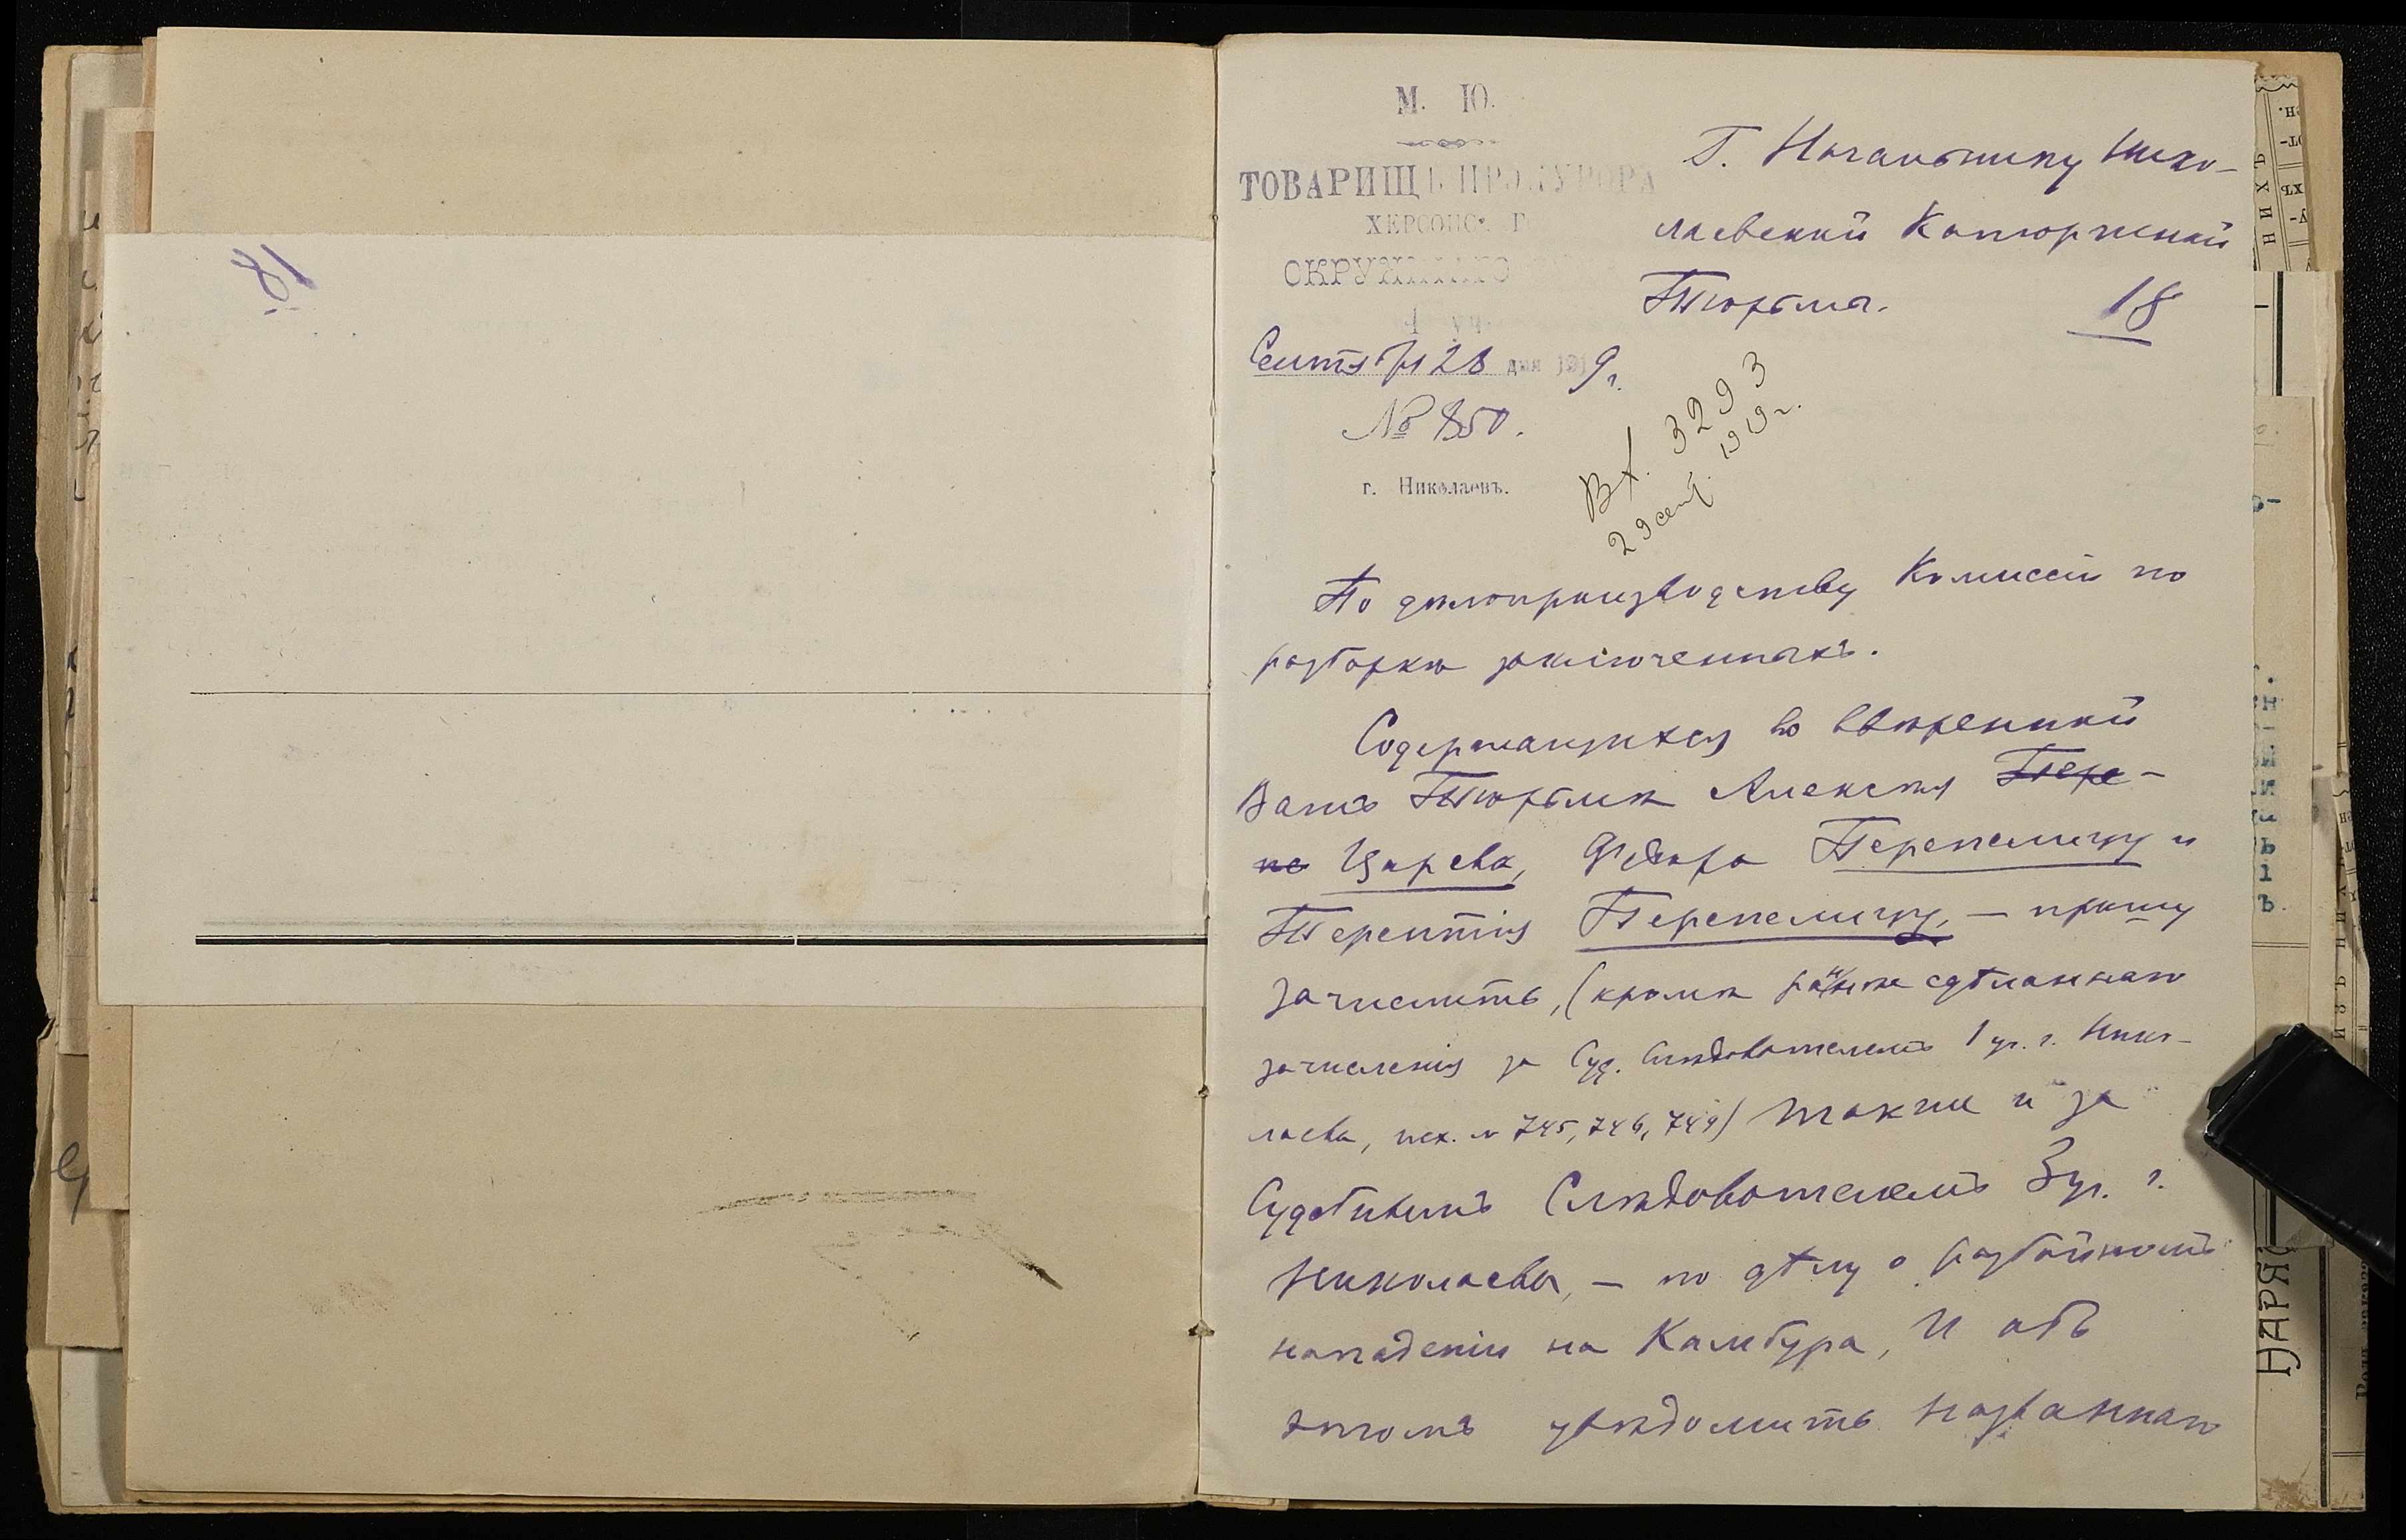 18
М. Ю.
ТОВАРИЩЪ ПРОКУРОРА
ХЕРСОНСК
ОКРУЖНАГО
4 уч.
Сентября 28 дня 1919 г.
№ 850.
г. Николаевъ.
Г. Начальнику Нико-
лаевской Каторжной
Тюрьмы.
18
Вх. 3293
29 сент. 1919 г.
По дѣлопроизводству Комиссіи по
разборкѣ заключенныхъ.
Содержащихся во ввѣренной
Вамъ Тюрьмѣ Алексѣя Пере-
пе Царева, Ѳедора Перепелицу и
Терентія Перепелицу, — прошу
зачислить, (кромѣ ранѣе сдѣланнаго
зачисленія за Суд. Слѣдователемъ 1 уч. г. Нико-
лаева, исх. № 745, 746, 749) также и за
Судебнымъ Слѣдователемъ 3 уч. г.
Николаева, — по дѣлу о разбойномъ
нападеніи на Камбура, и объ
этомъ увѣдомить названнаго
НАРЯ